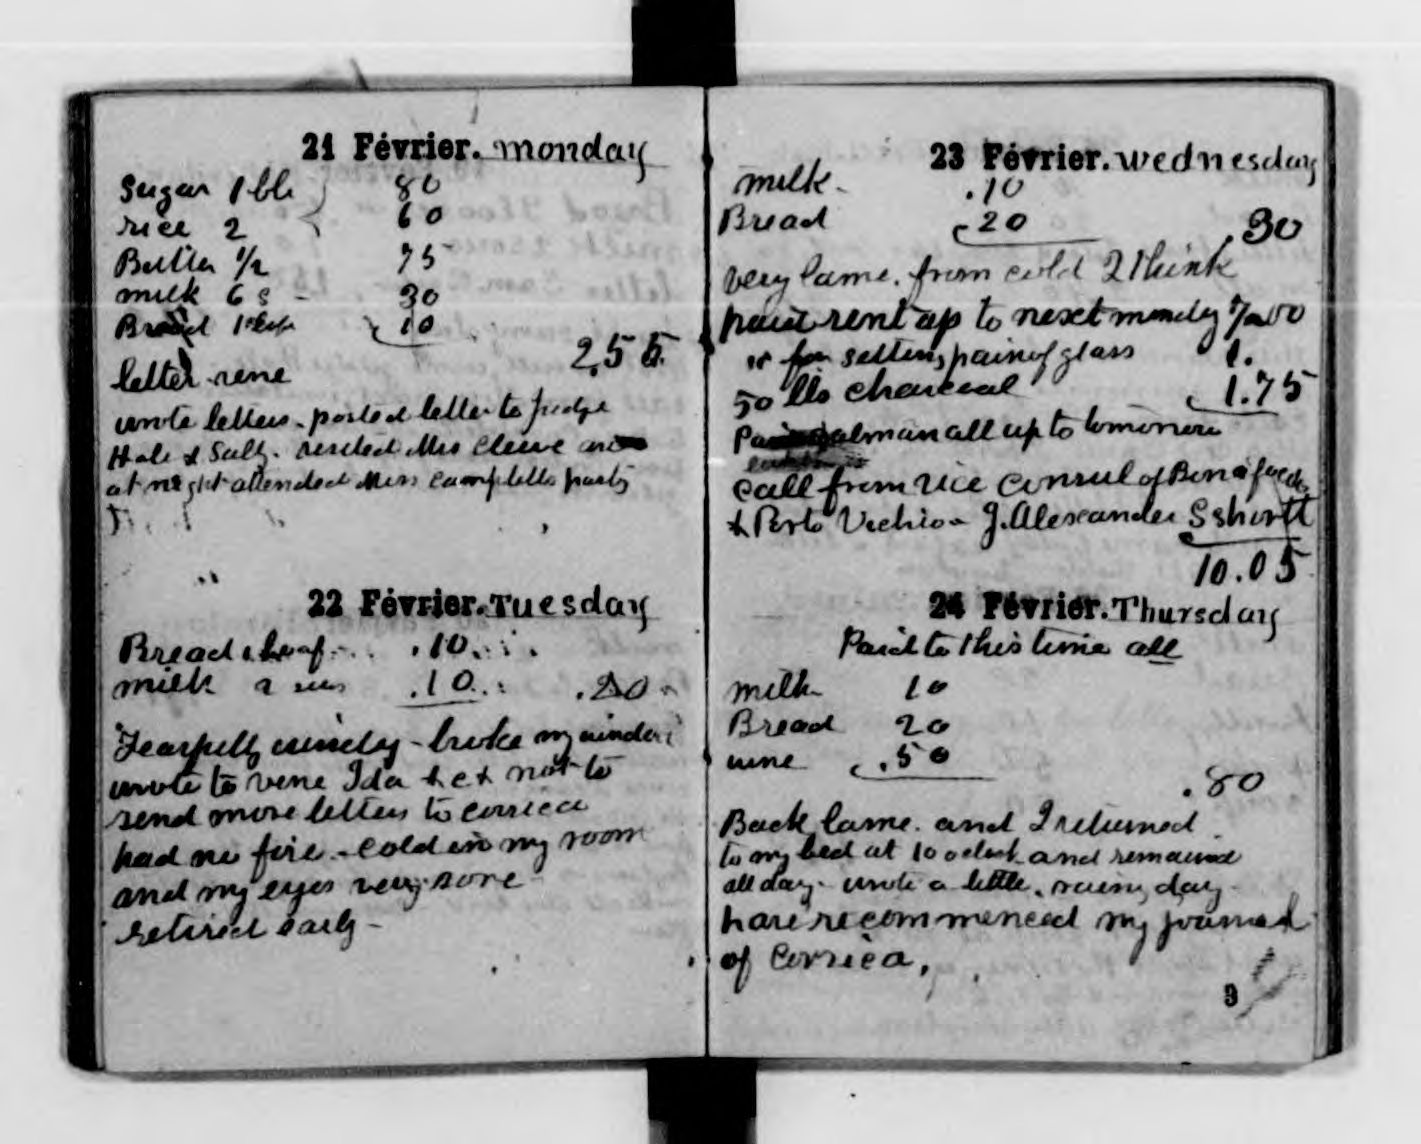 21 Février. monday
Sugar 1 lb 80
rice 2 60
Butter 1/2 75
milk 6 s - 30
Bread 10
2.55
letter
wrote letters - posted letter to judge
Hale & Sally. visited Mrs
at night attended Miss Campbells party
22 Février. Tuesday
Bread 1 loaf .10
milk 2 sus .10 .20
Fearfully windy - broke my window
wrote to Ida not to
send more letters to Corsica
had no fire - cold in my room
and my eyes very sore
retired early -
23 Février. Wednesday
milk - .10
Bread 20 .30
very lame. from cold I think
paid rent up to next monday 7.00
" for setting pain of glass 1.
50 lbs charcoal 1.75
all up to tomorrow
call from vice consul of
& Porto Vechio - J. Alexander
10.05
24 Février. Thursday
Paid to this time all
milk 10
Bread 20
wine .50
.80
Back lame. and I returned
to my bed at 10 oclock and remained
all day - wrote a little. rainy day -
have recommenced my journal
of Corsica.
3